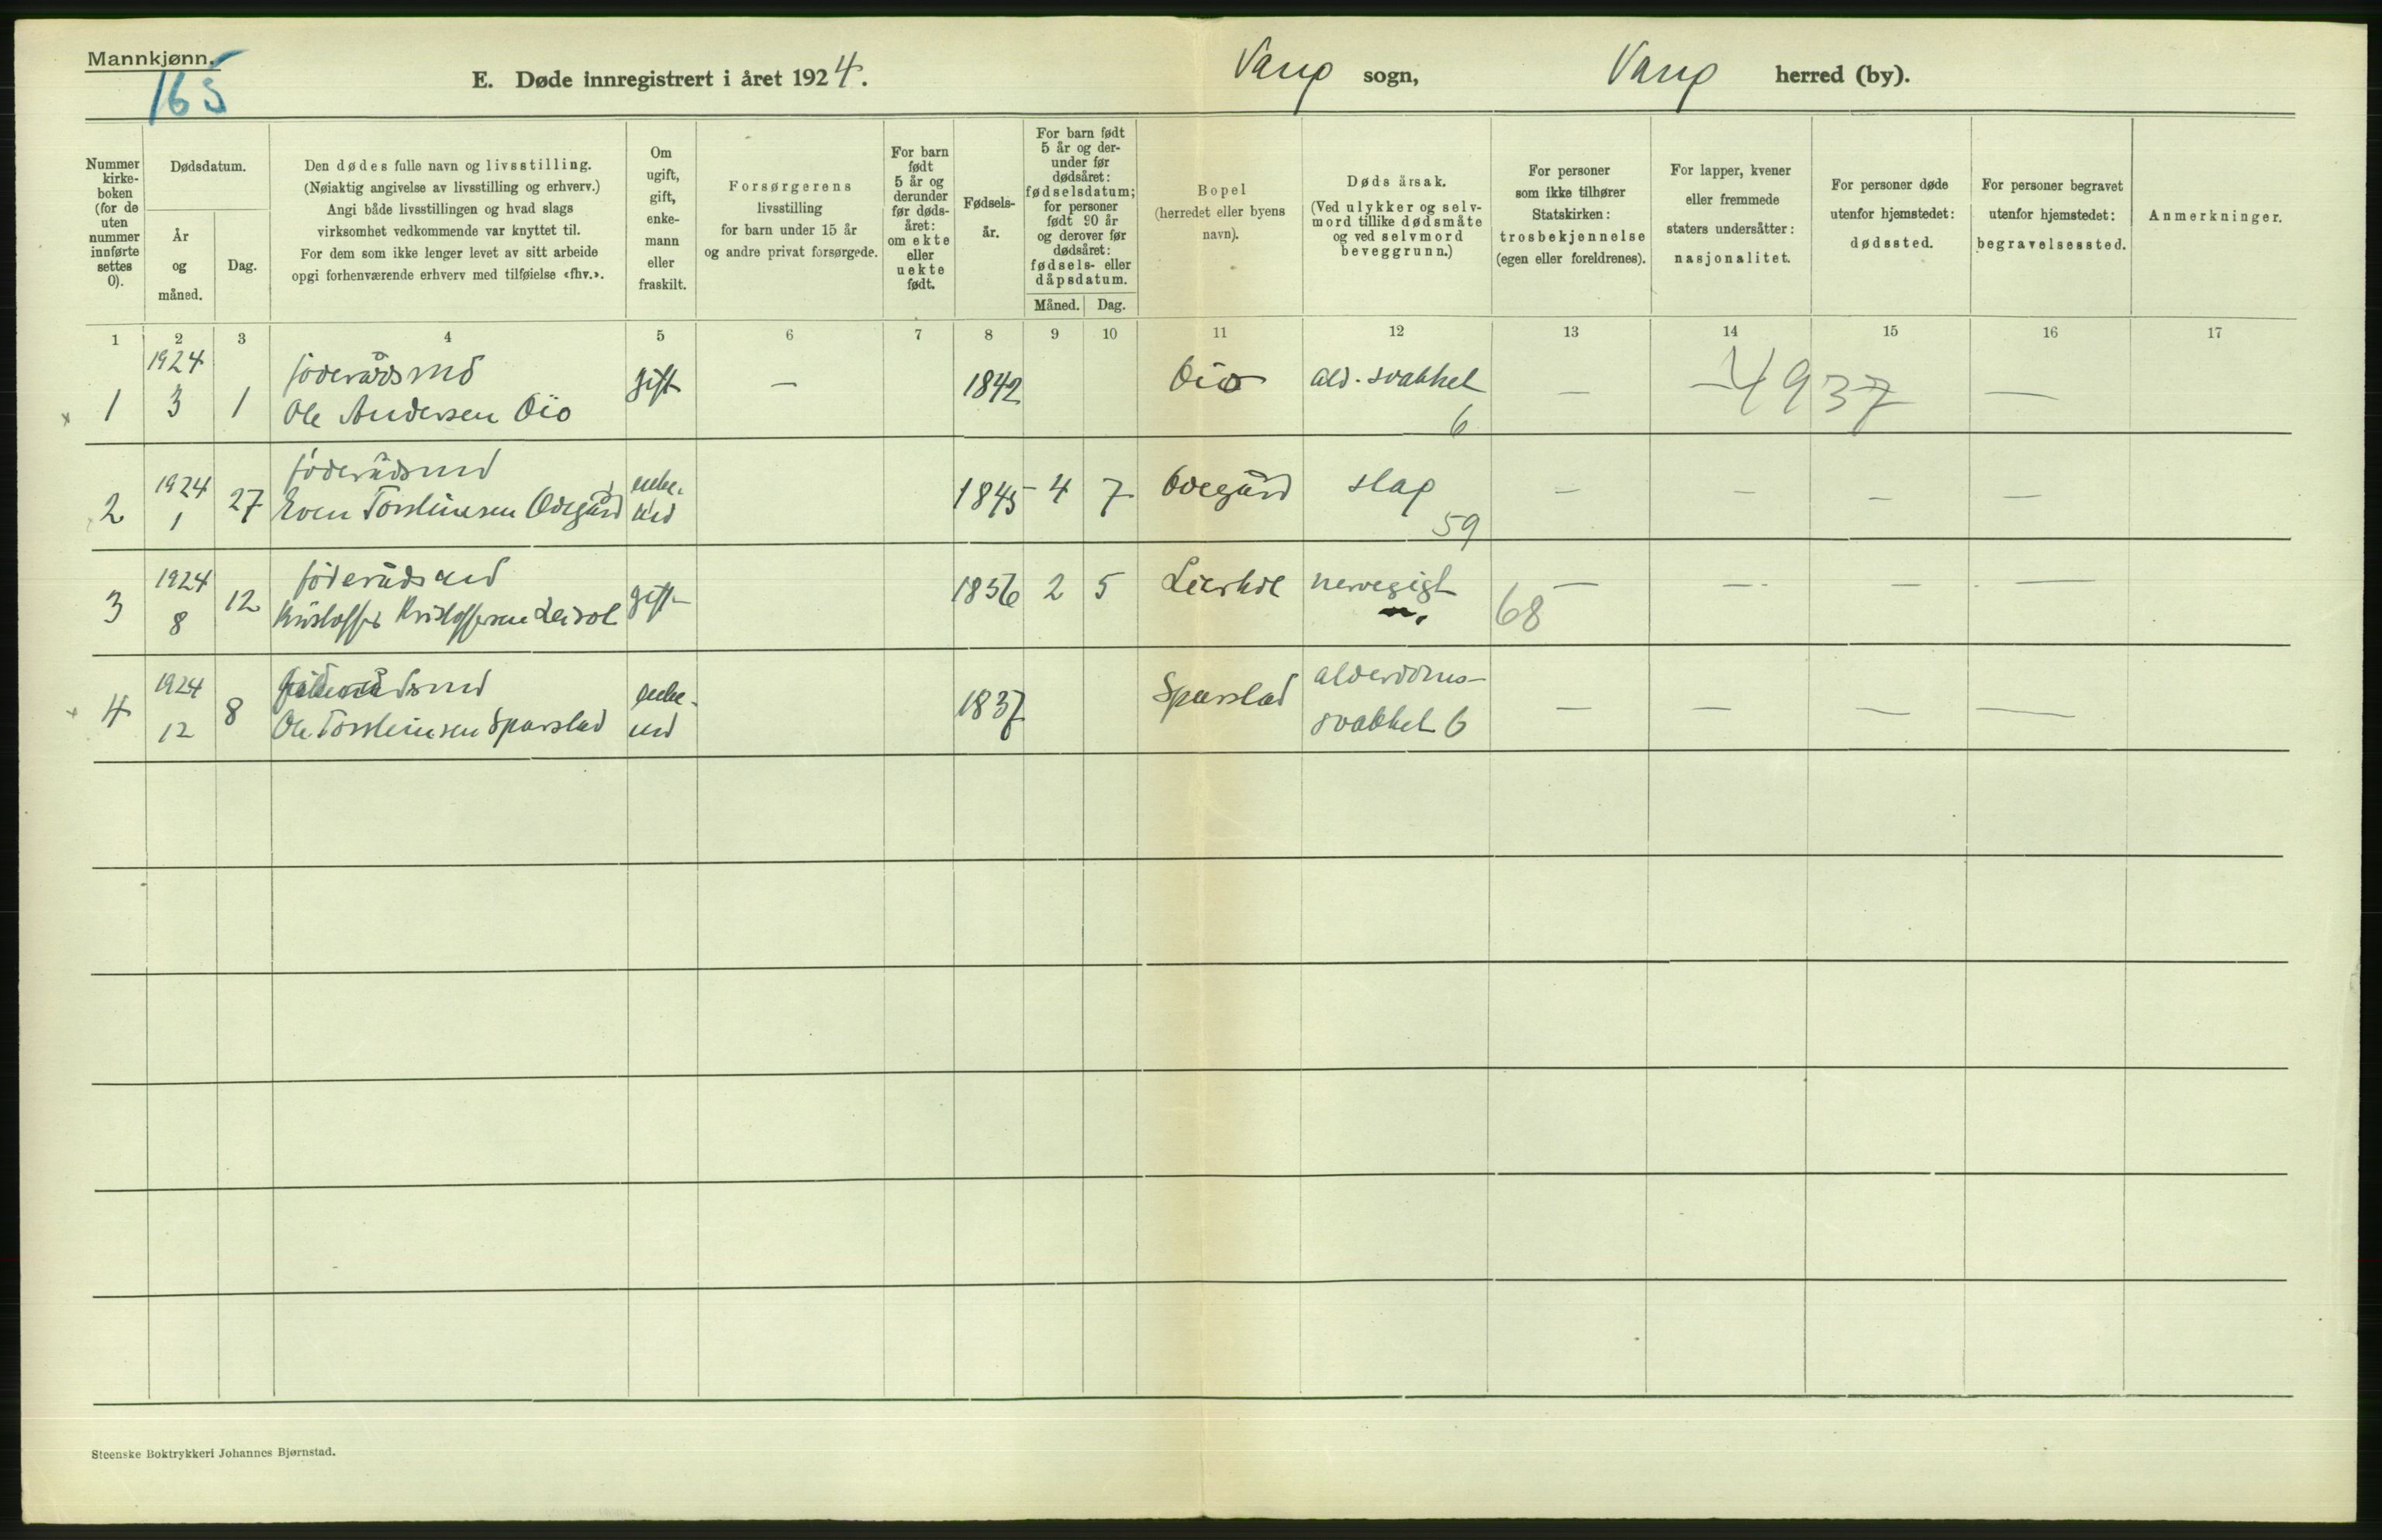 Mannkjønn.
165
E. Døde innregistrert i året 1924.
Vang sogn,
Vang herred (by).
Nummer kirke-boken (for de uten nummer innførte settes 0).
Dødsdatum.
År og måned.
Dag.
Den dødes fulle navn og livsstilling.
(Nøiaktig angivelse av livsstilling og erhverv.)
Angi både livsstillingen og hvad slags
virksomhet vedkommende var knyttet til.
For dem som ikke lenger levet av sitt arbeide
opgi forhenværende erhverv med tilføielse «fhv.».
Om ugift, gift, enke-mann eller fraskilt.
Forsørgerens
livsstilling
for barn under 15 år
og andre privat forsørgede.
For barn født 5 år og derunder før døds-året: om ekte eller uekte født.
Fødsels-år.
For barn født 5 år og der-under før dødsåret: fødselsdatum; for personer født 90 år og derover før dødsåret: fødsels- eller dåpsdatum.
Måned. Dag.
Bopel
(herredet eller byens
navn).
Dødsårsak.
(Ved ulykker og selv-
mord tillike dødsmåte
og ved selvmord
beveggrunn.)
For personer
som ikke tilhører
Statskirken:
trosbekjennelse
(egen eller foreldrenes).
For lapper, kvener
eller fremmede
staters undersåtter:
nasjonalitet.
For personer døde
utenfor hjemstedet:
dødssted.
For personer begravet
utenfor hjemstedet:
begravelsessted.
Anmerkninger.
1 2 3 4 5 6 7 8 9 10 11 12 13 14 15 16 17
1924 föderådsmd
1 3 1 Ole Andersen Öio gift — 1842 Öio ald. svakhet 6 — —4937 —
1924 föderådsmd
2 1 27 Even Torsteinsen Ödegård enke-md 1845 4 7 Ödegård slag 59 — — — —
1924 föderådsmd
3 8 12 Kristoffer Kristoffersen gift 1856 2 5 nervegigt 68 — — — —
1924 föderådsmd
4 12 8 Ole Torsteinsen Sparstad enke-md 1837 Sparstad alderdoms-
svakhet 6 — — — —
Steenske Boktrykkeri Johannes Bjørnstad.